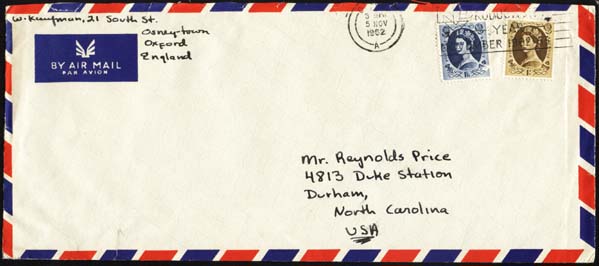 W. Kaufman, 21 South St.
Osney-town
Oxford
England
BY AIR MAIL
PAR AVION
5 NOV
1962
-A-
YEA
BER
Mr. Reynolds Price
4813 Duke Station
Durham,
North Carolina
USA